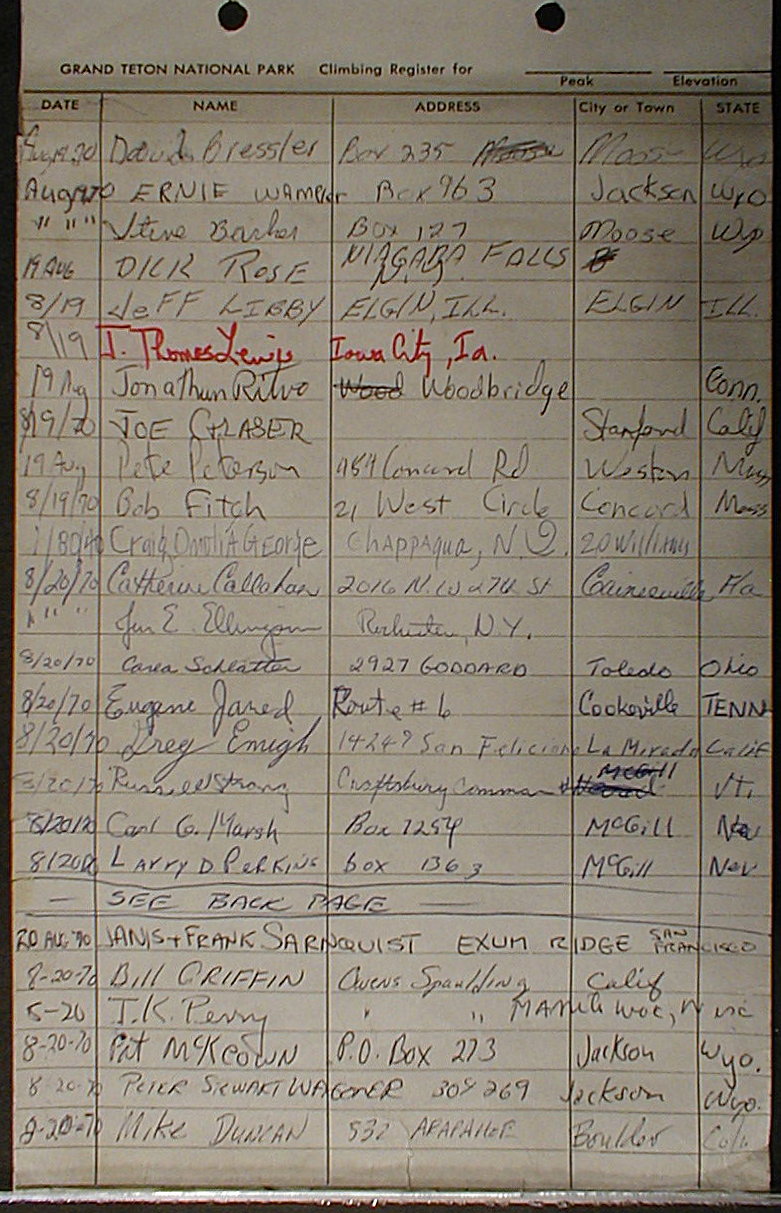 GRAND TETON NATIONAL PARK Climbing Register for
Peak Elevation
DATE NAME ADDRESS City or Town STATE
Aug 19 70 David Bressler Box 235 Moose Wyo
Aug 19 70 ERNIE WAMPLER Box 963 Jackson Wyo
" " " Steve Barker Box 127 Moose Wyo
19 AUG DICK ROSE NIAGARA FALLS N.Y.
8/19 JEFF LIBBY ELGIN, ILL. ELGIN ILL.
8/19 J. Thomas Lewis Iowa City, Ia.
19 Aug Jonathan Ritvo Wood Woodbridge Conn.
8/19/70 JOE GLASER Stanford Calif
19 Aug Pete Peterson Concord Rd Weston Mass
8/19/70 Bob Fitch 21 West Circle Concord Mass
Craig George Chappaqua, N.Y. 20 Williams
8/20/70 Catherine Callahan 2016 N.W 27th St Gainesville Fla
" " " E. Ellingson Rochester, N.Y.
8/20/70 Carla Schlatter 2927 GODDARD Toledo Ohio
8/20/70 Eugene Jared Route #6 Cookeville TENN
8/20/70 Greg Emigh 14249 San Feliciano La Mirada Calif
8/20/70 Russell Strong Craftsbury Common McGill Vt.
8/20/70 Carl G. Marsh Box 1254 McGill Nev
8/20/70 LARRY D PERKINS box 1363 McGill Nev
— SEE BACK PAGE —
20 AUG '70 JANIS + FRANK SARNQUIST EXUM RIDGE SAN FRANCISCO
8-20-70 Bill GRIFFIN Owens Spaulding Calif
8-20 J.K. Perry " " Manitowoc, Wisc
8-20-70 Pat McKeown P.O. Box 273 Jackson Wyo.
8-20-70 PETER STEWART WAGONER 269 Jackson Wyo.
8-20-70 Mike DUNCAN 832 ARAPAHOE Boulder Colo